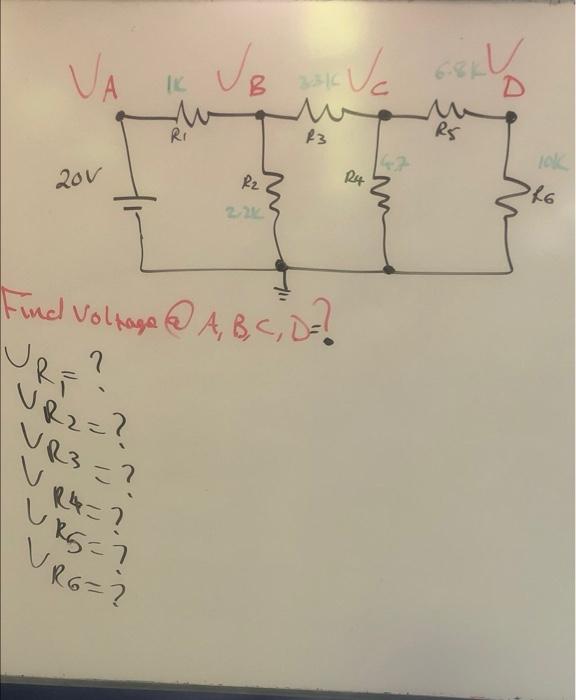 VA 1K VB 3.31K VC 6.8K VD
R1 R3 R5
20V R2 R4 4.7 10K
2.2K R6
Find Voltage @ A, B, C, D=?
VR1=?
VR2=?
VR3=?
VR4=?
VR5=?
VR6=?